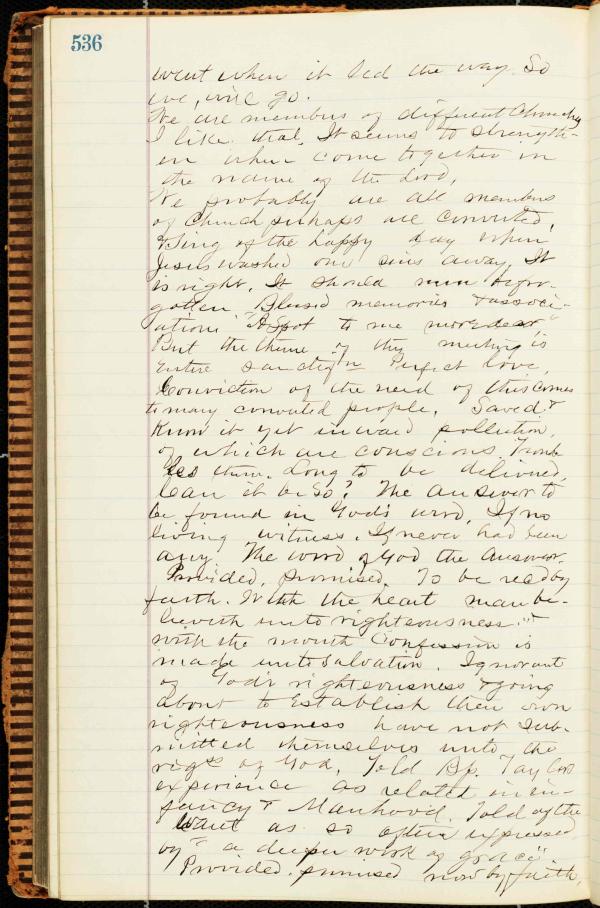 536
went when it led the way. So
we, will go.
We are members of different Churches
I like that. It seems to strength-
en when come together in
the name of the Lord,
We probably are all members
of Church perhaps all converted,
& Sing of the happy day when
Jesus washed our sins away. It
is right. It should never be for-
gotten. Blessed memories & associ-
ations. "A Spot to me more dear,"
But the theme of this meeting is
Entire Sanctifn Perfect Love,
Conviction of the need of this comes
to many converted people. Saved &
Know it yet inward pollution,
of which are conscious. Troub
les them. Long to be delivered.
Can it be So? The answer to
be found in God's word. If no
living witness. If never had been
any. The word of God the answer.
Provided, promised. To be read by
faith. With the heart man be-
lieveth unto righteousness "&
with the mouth Confession is
made unto Salvation. Ignorant
of God's righteousness & going
about to Establish their own
righteousness have not Sub-
mitted themselves unto the
rigs of God. Told Bp. Taylors
experience as related in in-
fancy & Manhood. Told of the
Want as so often expressed
by "a deeper work of grace"
Provided. promised now by faith,